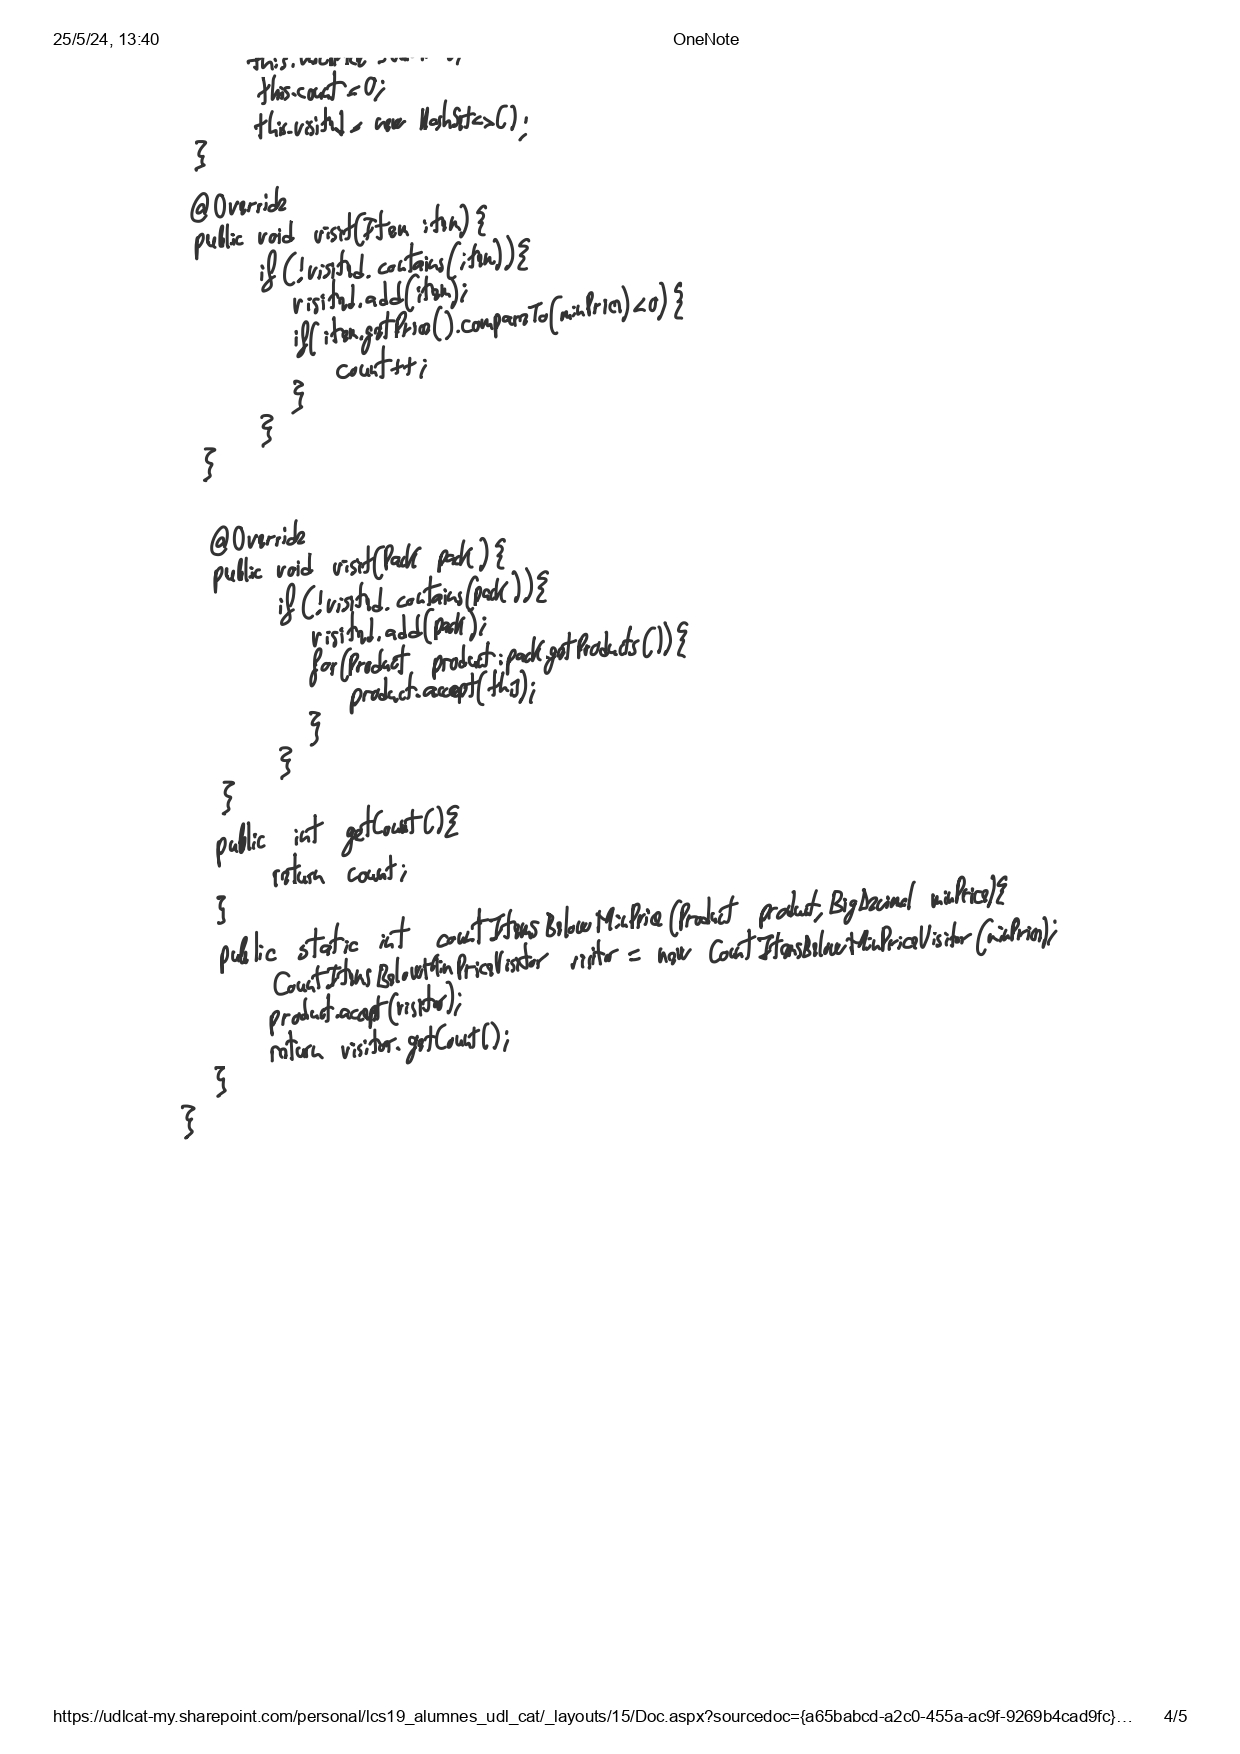 25/5/24, 13:40 OneNote
this.count = 0;
this.visited = new HashSet<>();
}
@Override
public void visit(Item item){
if(!visited.contains(item)){
visited.add(item);
if(item.getPrice().compareTo(minPrice)<0){
count++;
}
}
}
@Override
public void visit(Pack pack){
if(!visited.contains(pack)){
visited.add(pack);
for(Product product:pack.getProducts()){
product.accept(this);
}
}
}
public int getCount(){
return count;
}
public static int countItemsBelowMinPrice(Product product, BigDecimal minPrice){
CountItemsBelowMinPriceVisitor visitor = new CountItemsBelowMinPriceVisitor(minPrice);
product.accept(visitor);
return visitor.getCount();
}
}
https://udlcat-my.sharepoint.com/personal/lcs19_alumnes_udl_cat/_layouts/15/Doc.aspx?sourcedoc={a65babcd-a2c0-455a-ac9f-9269b4cad9fc}… 4/5